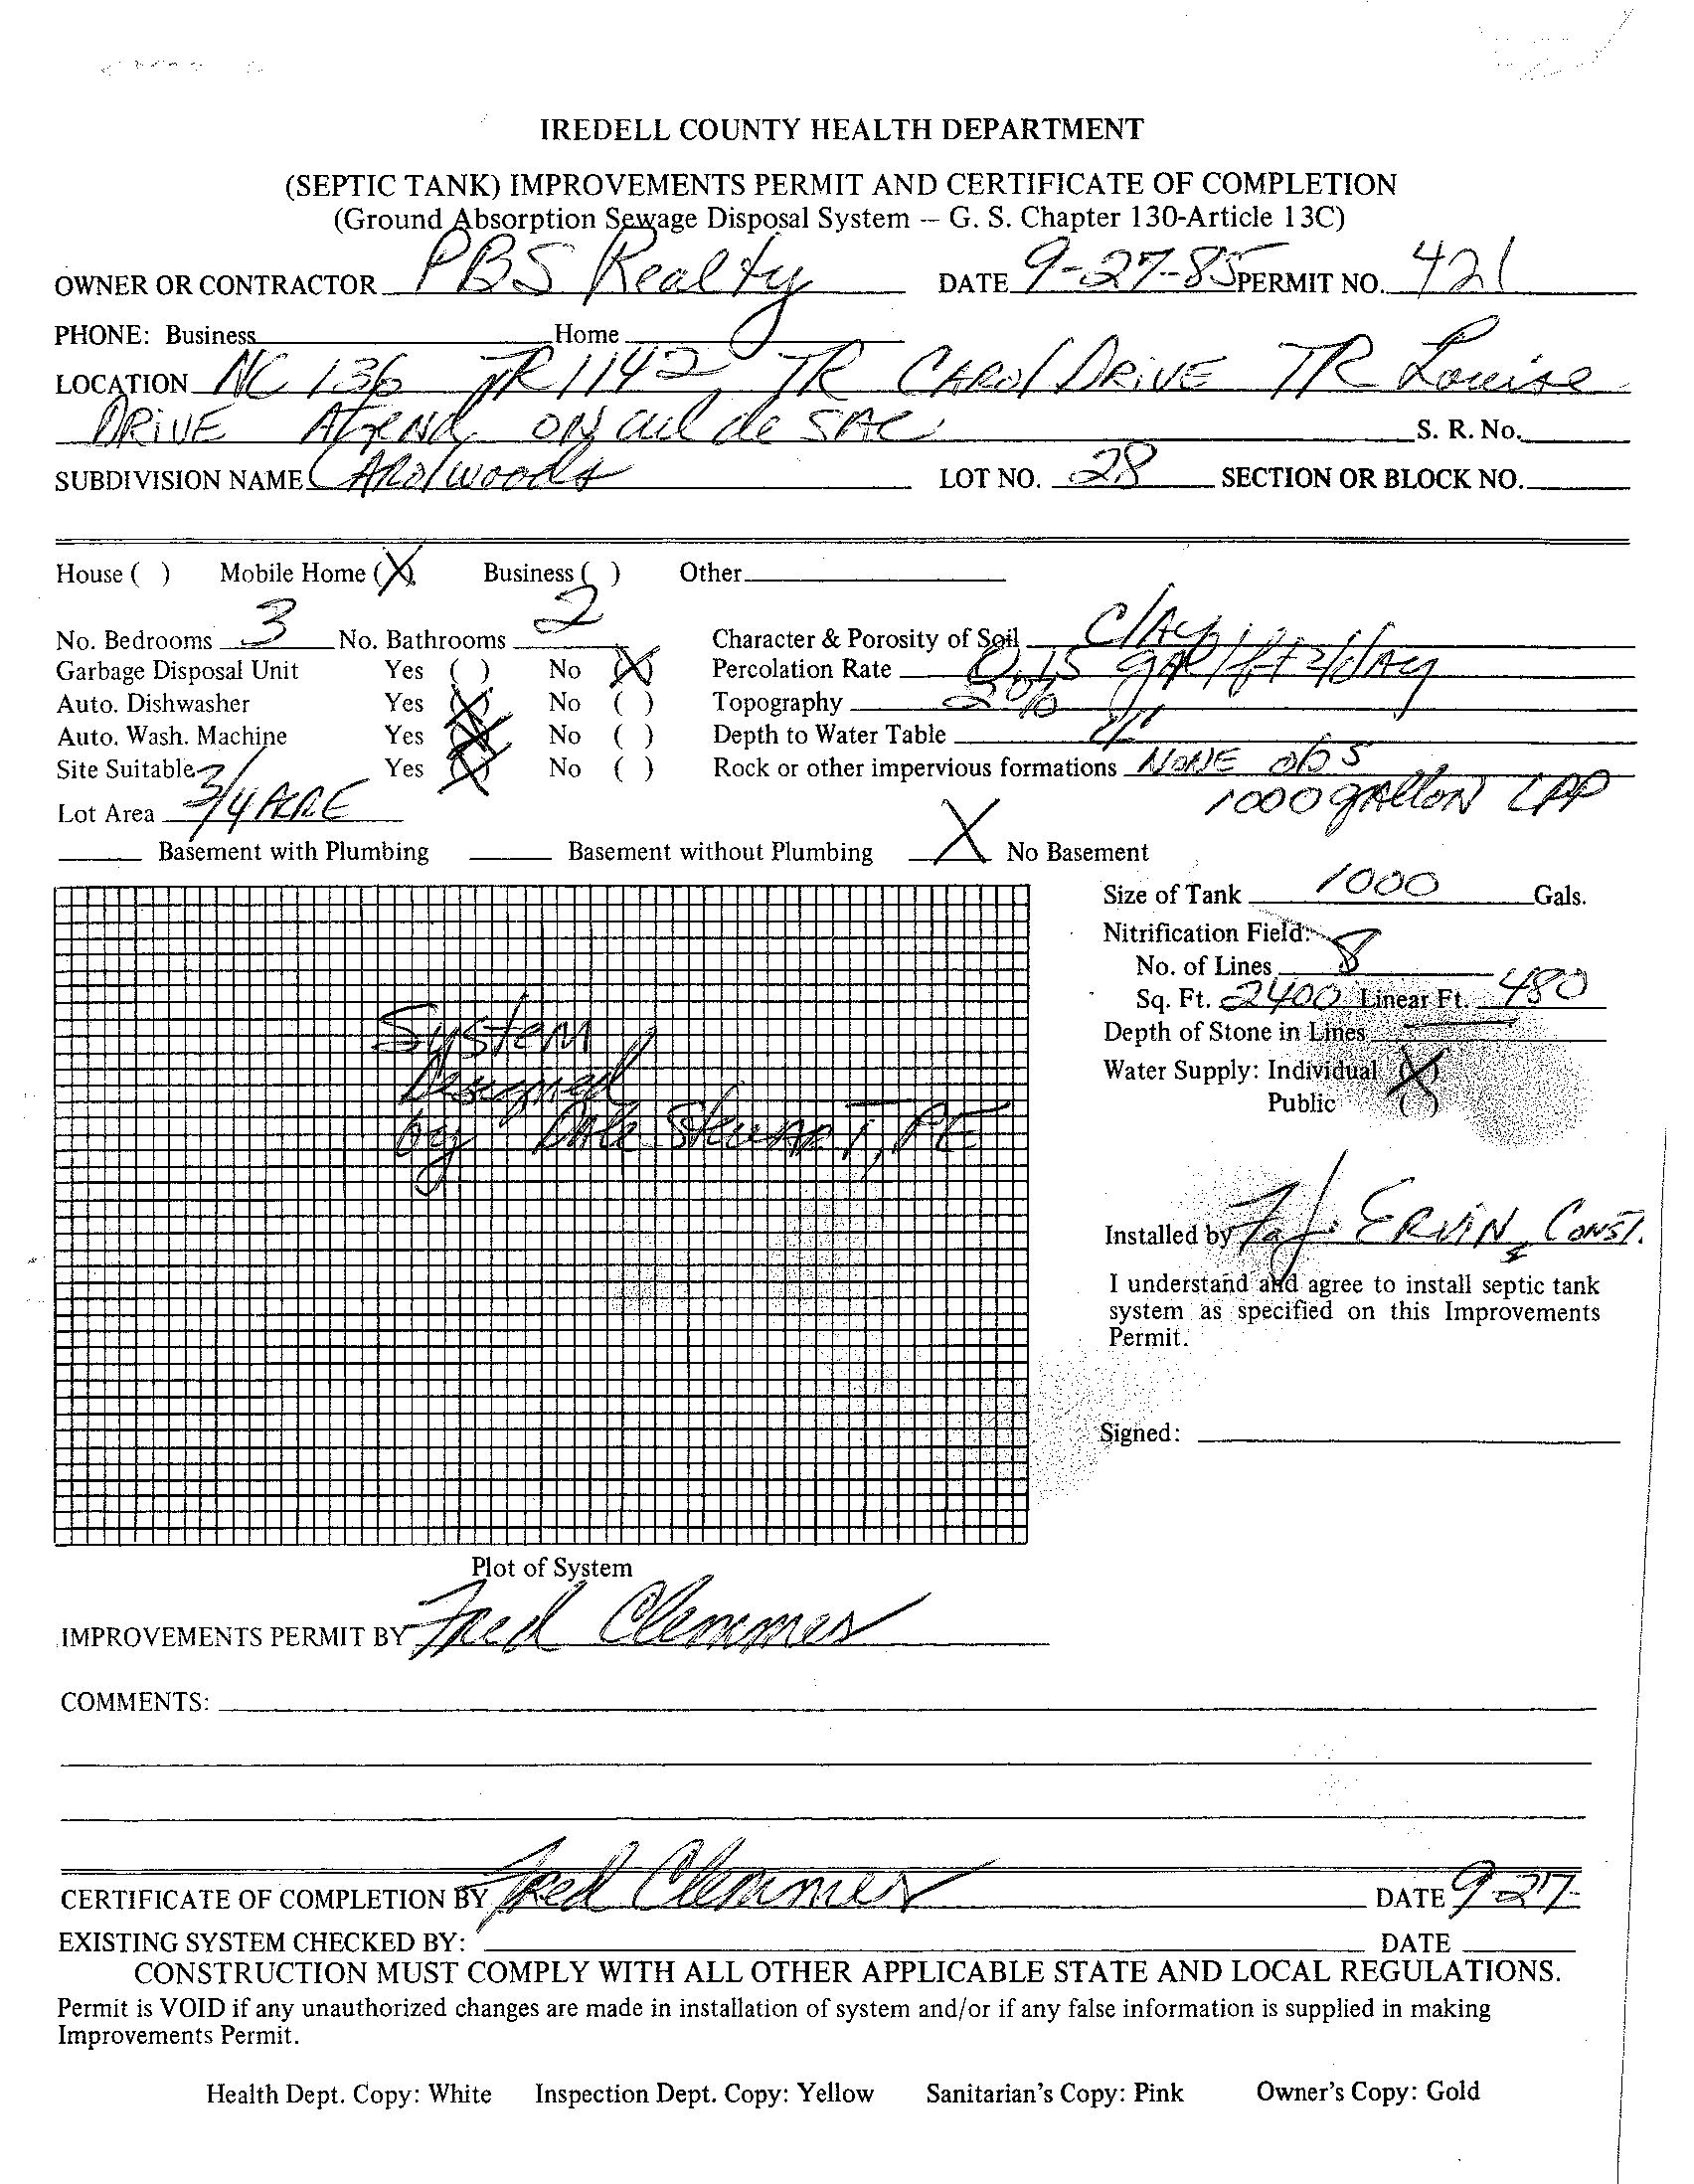 IREDELL COUNTY HEALTH DEPARTMENT
(SEPTIC TANK) IMPROVEMENTS PERMIT AND CERTIFICATE OF COMPLETION
(Ground Absorption Sewage Disposal System – G. S. Chapter 130-Article 13C)
OWNER OR CONTRACTOR PBS Realty DATE 9-27-85 PERMIT NO. 421
PHONE: Business Home
LOCATION NC 136 TR 1142, TR CAROL DRIVE TR Louise
DRIVE At END ON cul de SAC S. R. No.
SUBDIVISION NAME CAROlwoods LOT NO. 28 SECTION OR BLOCK NO.
House ( ) Mobile Home (X) Business ( ) Other
No. Bedrooms 3 No. Bathrooms 2 Character & Porosity of Soil ClAy
Garbage Disposal Unit Yes ( ) No (X) Percolation Rate 0.15 gAl/ft2/dAy
Auto. Dishwasher Yes (X) No ( ) Topography
Auto. Wash. Machine Yes (X) No ( ) Depth to Water Table
Site Suitable Yes (X) No ( ) Rock or other impervious formations NONE obs
Lot Area 3/4 ACRE 1000 gAllON LPP
Basement with Plumbing Basement without Plumbing X No Basement
Size of Tank 1000 Gals.
Nitrification Field:
No. of Lines 8
Sq. Ft. 2400 Linear Ft. 480
Depth of Stone in Lines
Water Supply: Individual (X)
Public ( )
System
Designed
by Dale Stewart, PE
Installed by ERVIN CONST.
I understand and agree to install septic tank
system as specified on this Improvements
Permit.
Signed:
Plot of System
IMPROVEMENTS PERMIT BY Fred Clemmer
COMMENTS:
CERTIFICATE OF COMPLETION BY Fred Clemmer DATE 9-27-
EXISTING SYSTEM CHECKED BY: DATE
CONSTRUCTION MUST COMPLY WITH ALL OTHER APPLICABLE STATE AND LOCAL REGULATIONS.
Permit is VOID if any unauthorized changes are made in installation of system and/or if any false information is supplied in making
Improvements Permit.
Health Dept. Copy: White Inspection Dept. Copy: Yellow Sanitarian's Copy: Pink Owner's Copy: Gold